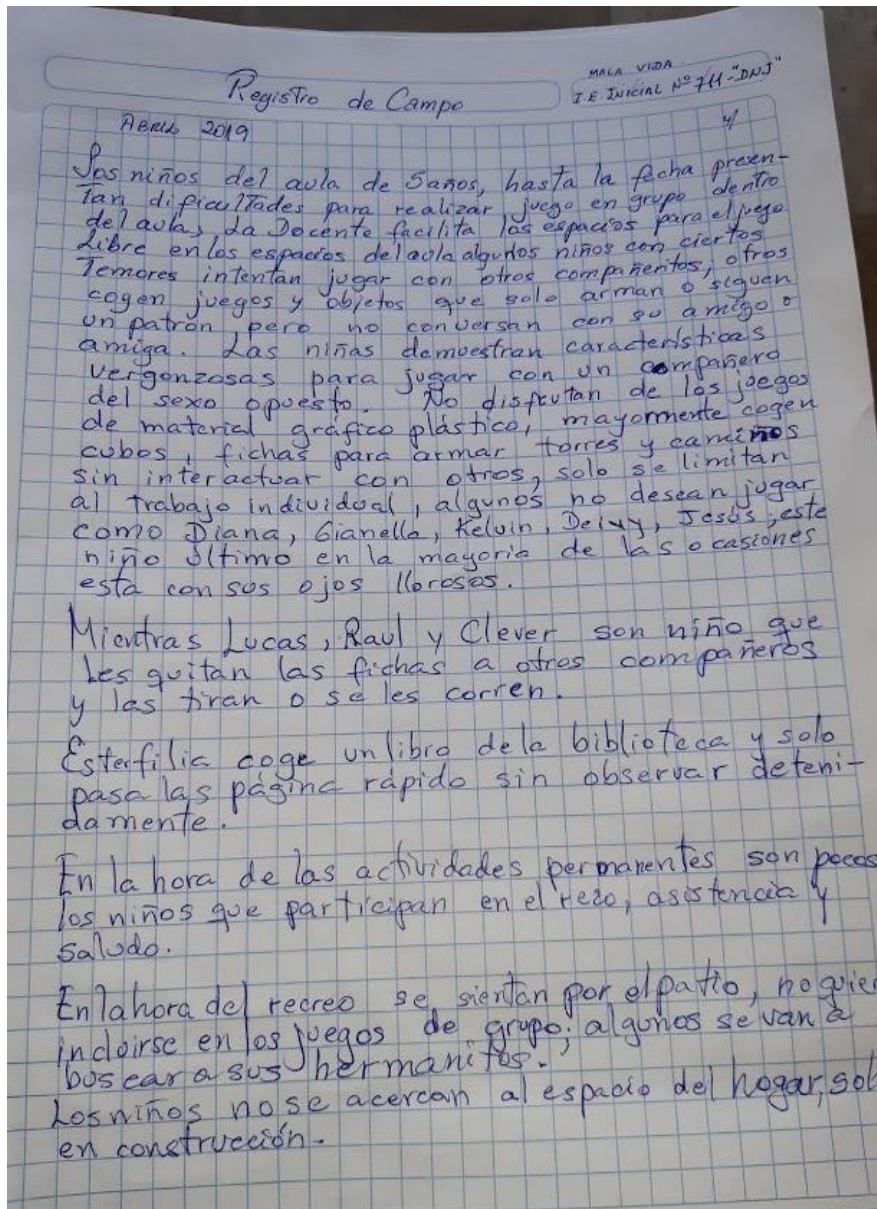 MALA VIDA
Registro de Campo
I.E. INICIAL Nº 711-"DNJ"
ABRIL 2019
Los niños del aula de 5años, hasta la fecha presen-
Tan dificulTades para realizar juego en grupo dentro
del aula, La Docente facilita los espacios para el juego
Libre en los espacios del aula algunos niños con ciertos
Temores intentan jugar con otros compañeritos, otros
cogen juegos y objetos que solo arman o siguen
un patrón, pero no conversan con su amigo o
amiga. Las niñas demuestran características
vergonzosas para jugar con un compañero
del sexo opuesto. No disfrutan de los juegos
de material gráfico plástico, mayormente cogen
cubos, fichas para armar torres y caminos
sin interactuar con otros, solo se limitan
al trabajo individual, algunos no desean jugar
como Diana, Gianella, Kelvin, Deivy, Jesús, este
niño último en la mayoria de las ocasiones
esta con sus ojos llorosos.
Mientras Lucas, Raul y Clever son niño que
Les quitan las fichas a otros compañeros
y las tiran o se les corren.
Esterfilia coge un libro de la biblioteca y solo
pasa las página rápido sin observar deteni-
damente.
En la hora de las actividades permanentes son pocos
los niños que participan en el rezo, asistencia y
saludo.
En la hora del recreo se sientan por el patio, no quie
incluirse en los juegos de grupo; algunos se van a
buscar a sus hermanitos.
Los niños no se acercan al espacio del hogar, sol
en construcción.